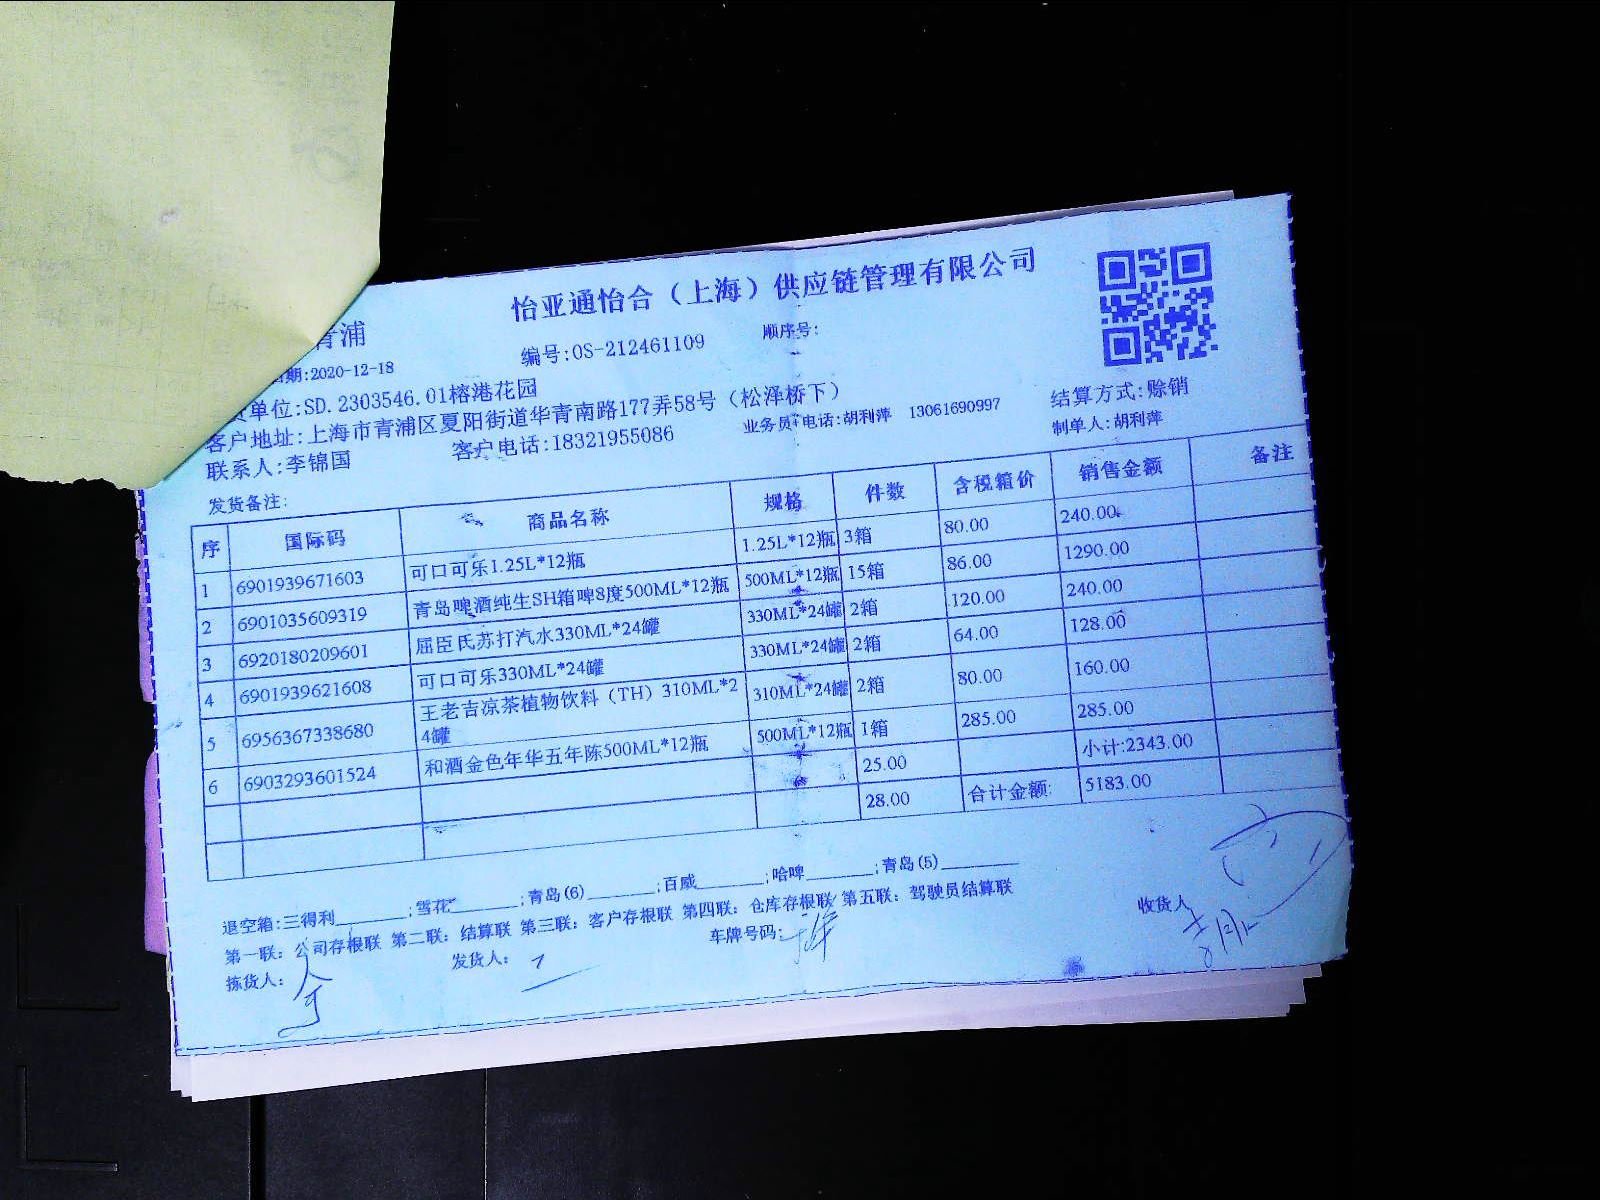 怡亚通怡合（上海）供应链管理有限公司
青浦
编号:OS-212461109
顺序号:
期:2020-12-18
单位:SD.2303546.01榕港花园
结算方式:赊销
客户地址:上海市青浦区夏阳街道华青南路177弄58号（松泽桥下）
联系人:李锦国
客户电话:18321955086
业务员 电话:胡利萍 13061690997
制单人:胡利萍
发货备注:
序 国际码 商品名称 规格 件数 含税箱价 销售金额 备注
1 6901939671603 可口可乐1.25L*12瓶 1.25L*12瓶 3箱 80.00 240.00
2 6901035609319 青岛啤酒纯生SH箱啤8度500ML*12瓶 500ML*12瓶 15箱 86.00 1290.00
3 6920180209601 屈臣氏苏打汽水330ML*24罐 330ML*24罐 2箱 120.00 240.00
4 6901939621608 可口可乐330ML*24罐 330ML*24罐 2箱 64.00 128.00
5 6956367338680 王老吉凉茶植物饮料（TH）310ML*2
4罐 310ML*24罐 2箱 80.00 160.00
6 6903293601524 和酒金色年华五年陈500ML*12瓶 500ML*12瓶 1箱 285.00 285.00
25.00 小计:2343.00
28.00 合计金额: 5183.00
退空箱:三得利________;雪花________;青岛(6)________;百威________;哈啤________;青岛(5)________
第一联：公司存根联 第二联：结算联 第三联：客户存根联 第四联：仓库存根联 第五联：驾驶员结算联
拣货人:
发货人:
车牌号码:
收货人